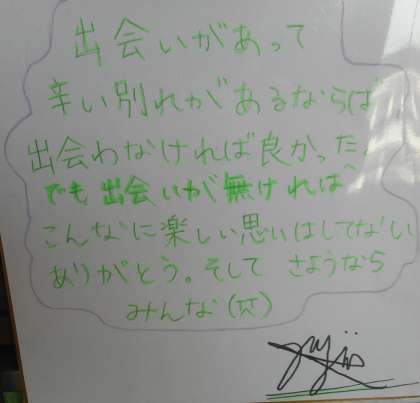 出会いがあって
辛い別れがあるならば
出会わなければ良かった。
でも出会いが無ければ
こんなに楽しい思いはしてなしい
ありがとう。そして さようなら
みんな(笑)